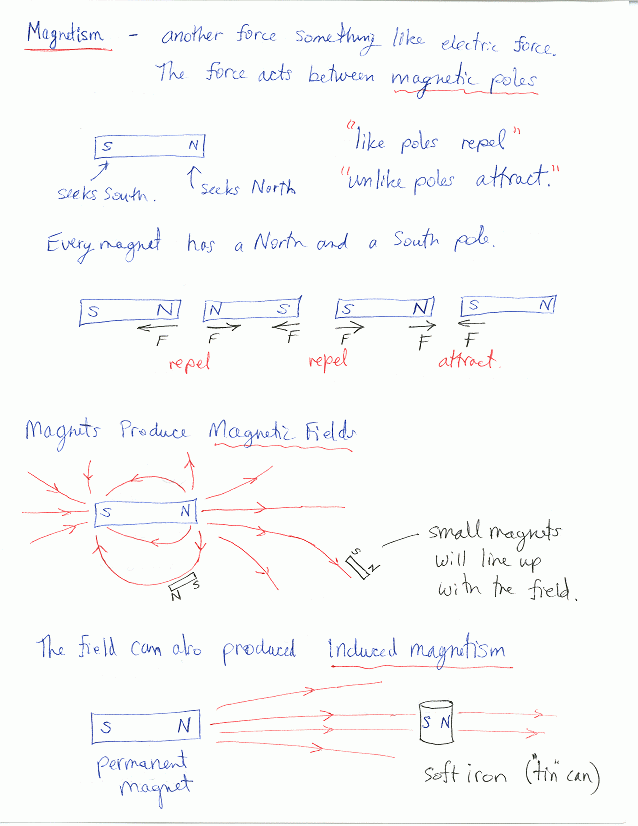 Magnetism - another force something like electric force.
The force acts between magnetic poles
S N
"like poles repel"
seeks South. seeks North
"unlike poles attract."
Every magnet has a North and a South pole.
S N N S S N S N
F F F F F F
repel repel attract.
Magnets Produce Magnetic Fields
S N
S N
N S
small magnets
will line up
with the field.
The field can also produced Induced magnetism
S N S N
permanent
magnet
soft iron ("tin" can)